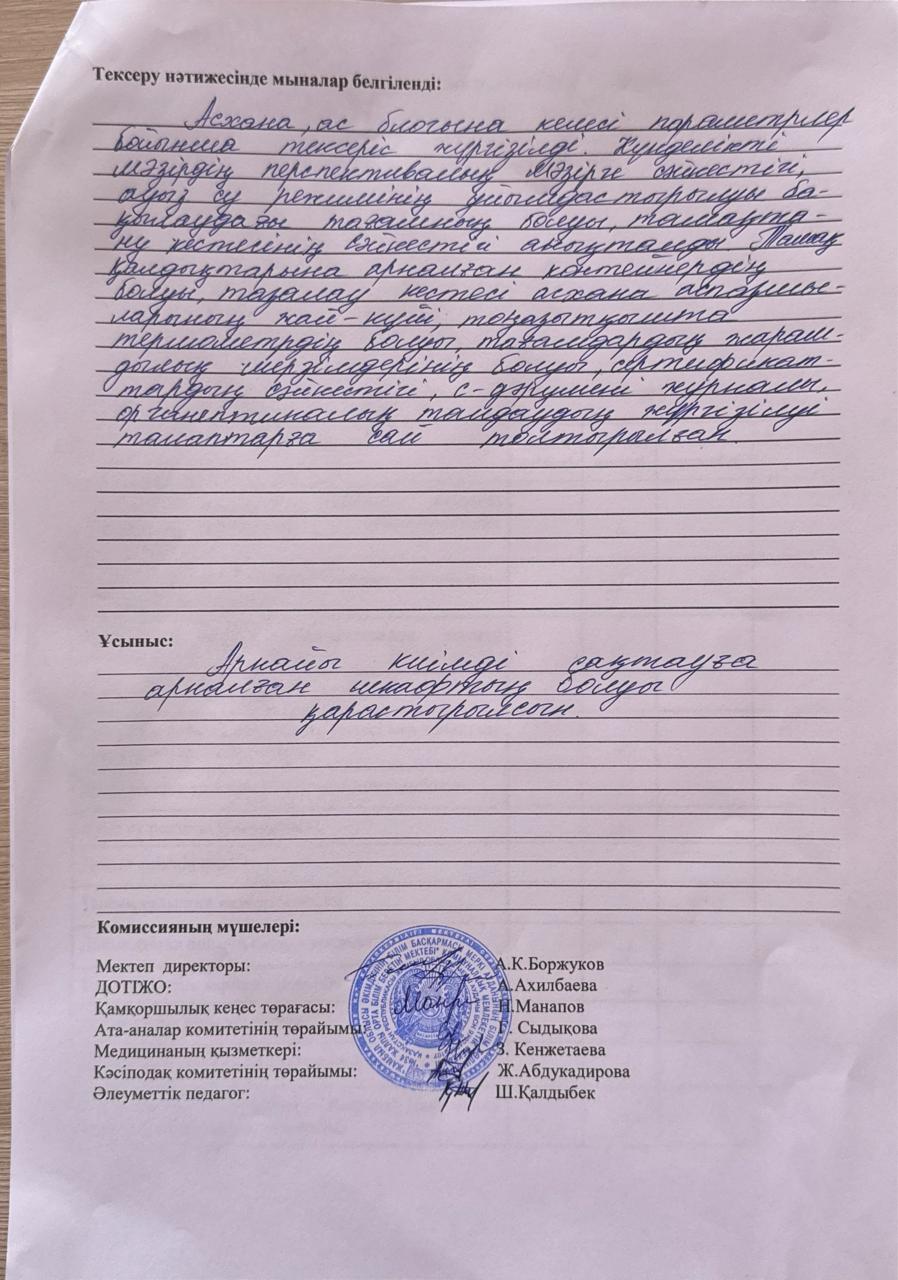 Тексеру нәтижесінде мыналар белгіленді:
Асхана, ас блогына келесі параметрлер
бойынша тексеріс жүргізілді. Күнделікті
мәзірдің перспективалық мәзірге сәйкестігі,
ауыз су режимінің ұйымдастырылуы ба-
қылаудағы тағамның болуы, тамақта-
ну кестесінің сәйкестігі анықталды Тамақ
қалдықтарына арналған контейнердің
болуы, тазалау кестесі асхана аспазшы-
ларының жай-күйі, тоңазытқышта
термометрдің болуы тағамдардың жарам-
дылық мерзімдерінің болуы, сертификат-
тардың сәйкестігі, с-дәрумені журналы.
органептикалық талдаудың жүргізілуі
талаптарға сай толтырылған.
Ұсыныс:
Арнайы киімді сақтауға
арналған шкафтың болуы
қарастырылсын.
Комиссияның мүшелері:
Мектеп директоры: А.К.Боржуков
ДОТІЖО: А.Ахилбаева
Қамқоршылық кеңес төрағасы: П.Манапов
Ата-аналар комитетінің төрайымы: Г. Сыдықова
Медицинаның қызметкері: З. Кенжетаева
Кәсіподақ комитетінің төрайымы: Ж.Абдукадирова
Әлеуметтік педагог: Ш.Қалдыбек